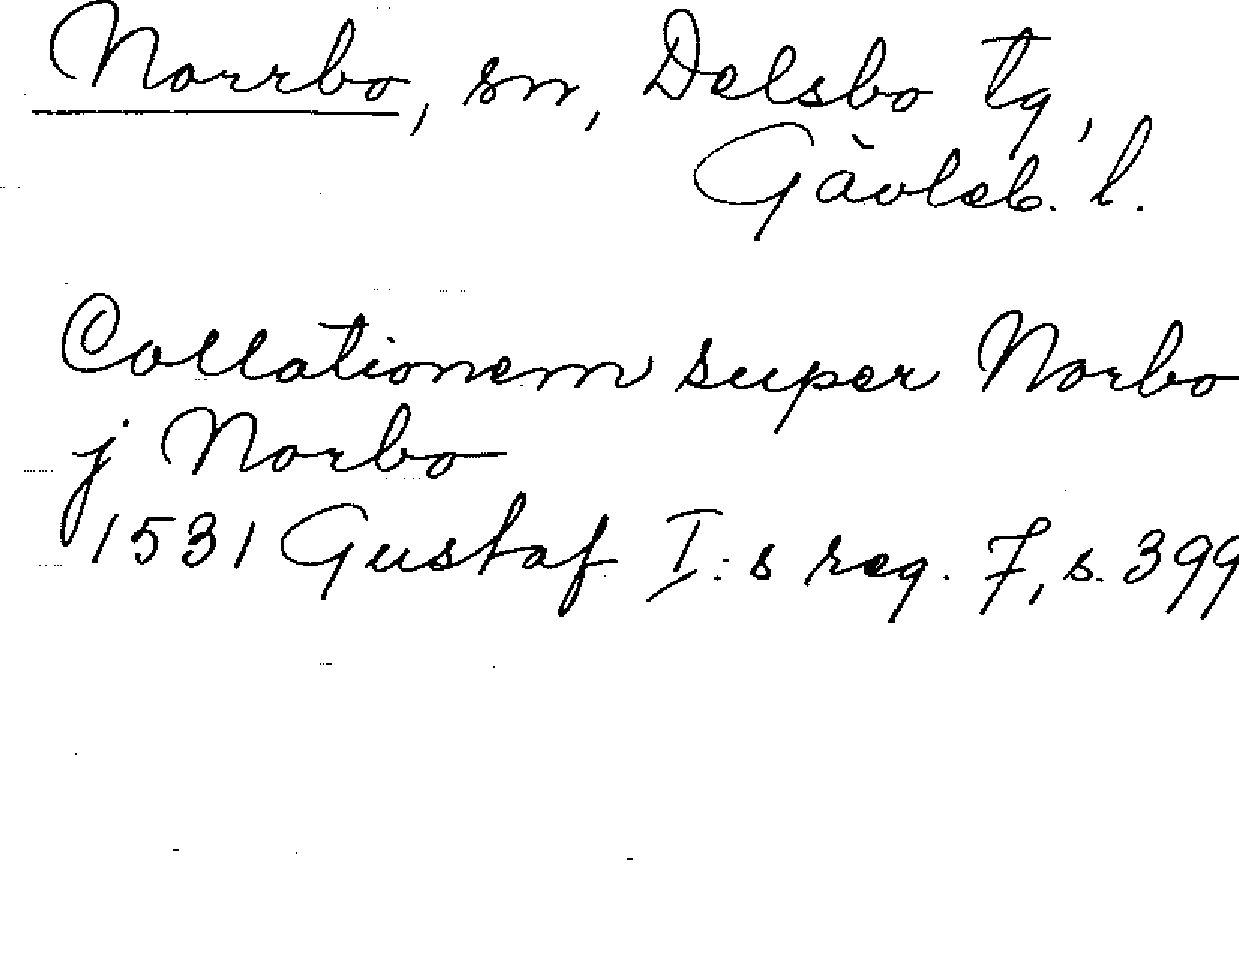 Norrbo, sn, Delsbo tg,
Gävleb. l.
Collationem super Norbo
j Norbo
1531 Gustaf I:s reg. 7, s. 399